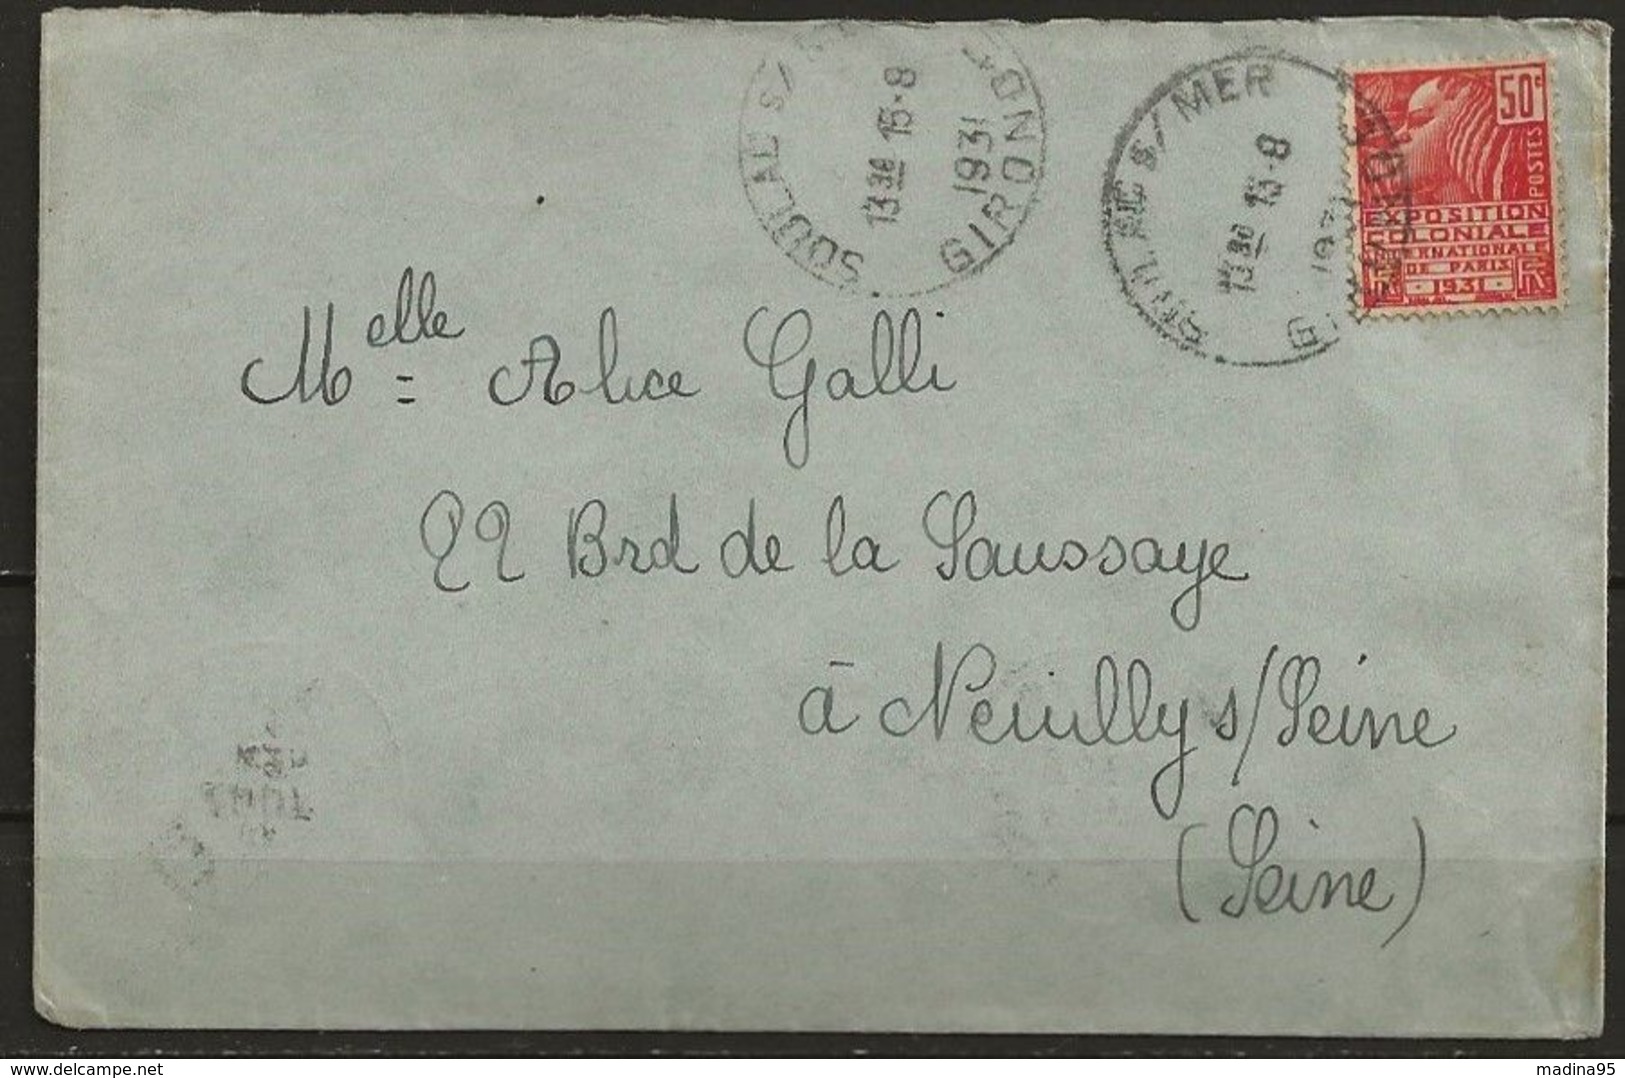 SOULAC S/
13 30 15-8
1931
GIRONDE
S/MER
13 30 15-8
50c
POSTES
EXPOSITION
COLONIALE
INTERNATIONALE
DE PARIS
1931
Melle = Alice Galli
22 Brd de la Saussaye
à Neuilly s/Seine
(Seine)
delcampe.net
madina95